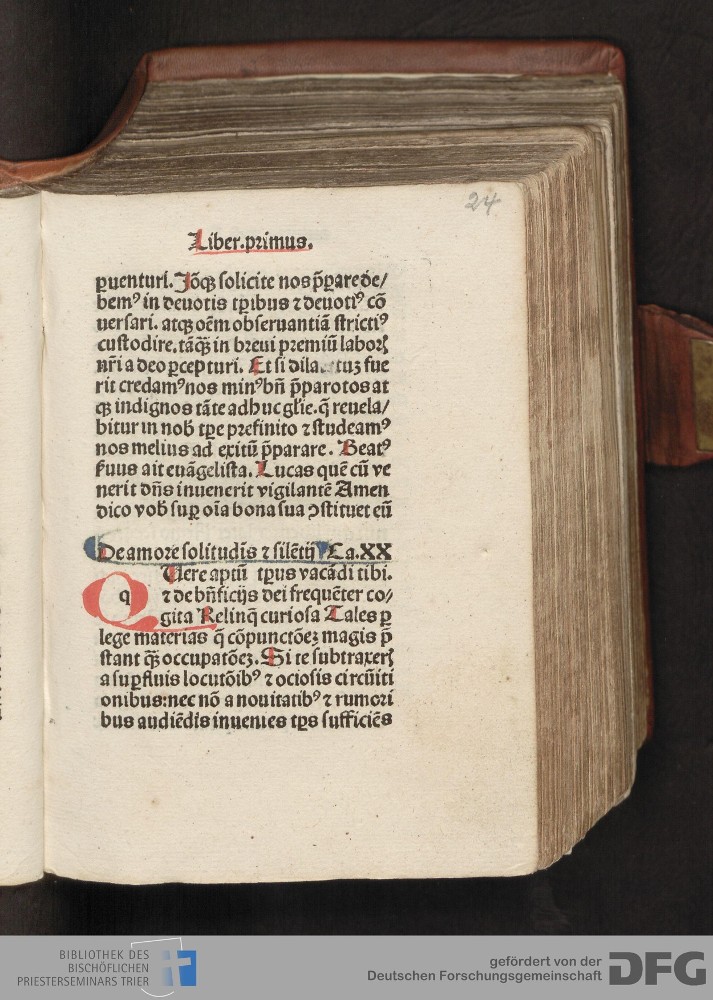 24
Liber.primus.
ꝑuenturi. Jõqꝫ solicite nos p̄ꝑare de/
bemꝰ in deuotis tꝑibus ⁊ deuotiꝰ cō
uersari. atqꝫ oēm obseruantiā strictiꝰ
custodire. tāqꝫ̄ in breui premiū laborꝝ
nr̄i a deo ꝑcepturi. Et si dila tuꝫ fue
rit credamꝰ nos minꝰ bn̄ p̄parotos at
qꝫ indignos tāte adhuc glīe. q̄ reuela/
bitur in nob̄ tꝑe prefinito ⁊ studeamꝰ
nos melius ad exitū p̄parare. Beatꝰ
ẜuus ait euāgelista. Lucas quē cū ve
nerit dn̄s inuenerit vigilantē Amen
dico vob̄ suꝑ oīa bona sua ↄstituet eū
De amore solitudīs ⁊ silētij Ca.XX
q
Uere aptū tꝑus vacādi tibi.
⁊ de bn̄ficijs dei frequēter co/
gita Relinq̄ curiosa Tales ꝑ
lege materias q̄ cōpunctōeꝫ magis p̄
stant qꝫ̄ occupatōeꝫ. Si te subtraxerꝭ
a suꝑfluis locutōibꝰ ⁊ ociosis circūiti
onibus: nec nō a nouitatibꝰ ⁊ rumori
bus audiēdis inuenies tꝑs sufficiēs
BIBLIOTHEK DES
BISCHÖFLICHEN
PRIESTERSEMINARS TRIER
gefördert von der
Deutschen Forschungsgemeinschaft
DFG